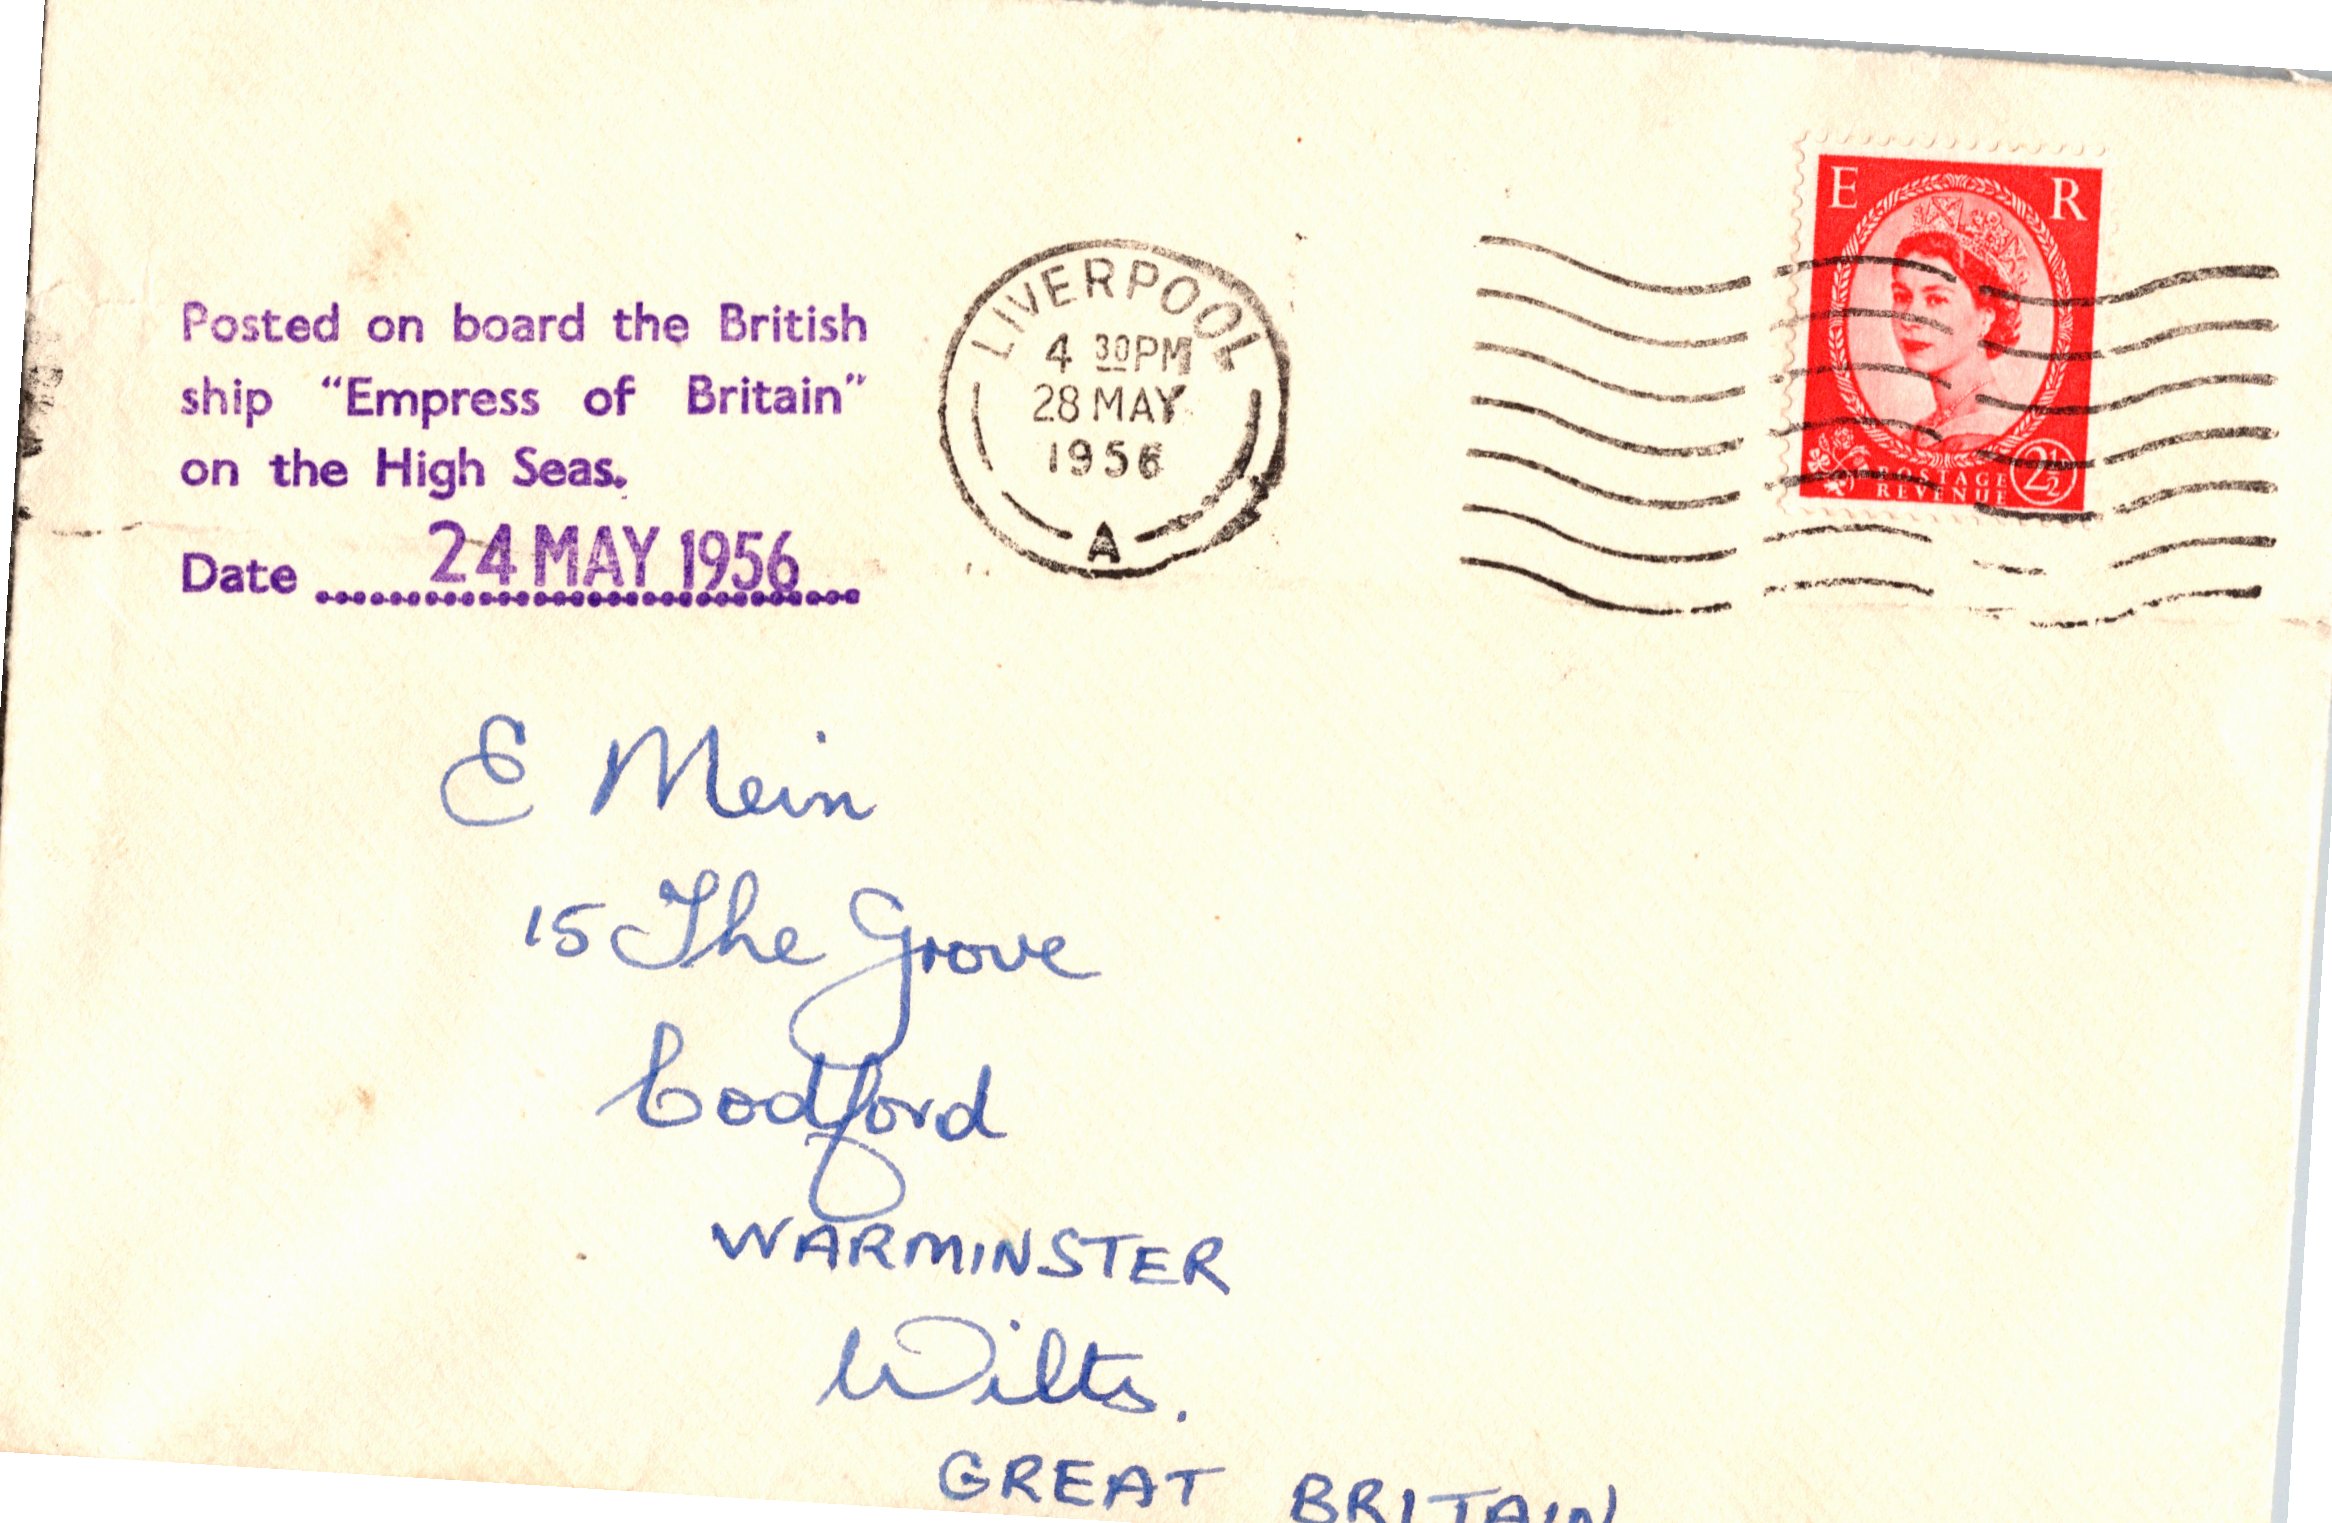 Posted on board the British
ship “Empress of Britain”
on the High Seas.
Date 24 MAY 1956
LIVERPOOL
4 30PM
28 MAY
1956
A
E R
POSTAGE
REVENUE
2½
E Mein
15 The Grove
Codford
WARMINSTER
Wilts.
GREAT BRITAIN